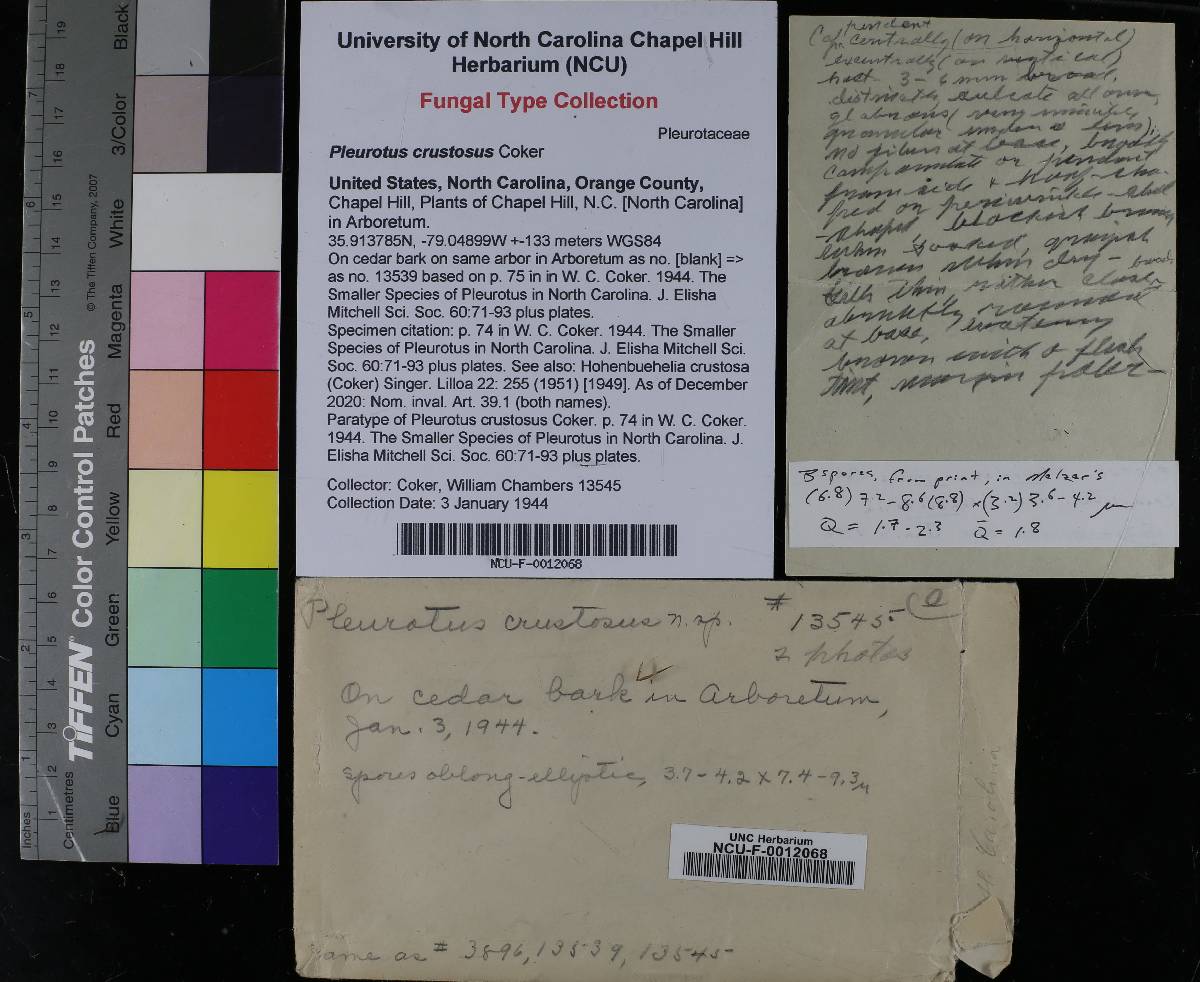 University of North Carolina Chapel Hill
Herbarium (NCU)
Fungal Type Collection
Pleurotaceae
Pleurotus crustosus Coker
United States, North Carolina, Orange County,
Chapel Hill, Plants of Chapel Hill, N.C. [North Carolina]
in Arboretum.
35.913785N, -79.04899W +-133 meters WGS84
On cedar bark on same arbor in Arboretum as no. [blank] =>
as no. 13539 based on p. 75 in in W. C. Coker. 1944. The
Smaller Species of Pleurotus in North Carolina. J. Elisha
Mitchell Sci. Soc. 60:71-93 plus plates.
Specimen citation: p. 74 in W. C. Coker. 1944. The Smaller
Species of Pleurotus in North Carolina. J. Elisha Mitchell Sci.
Soc. 60:71-93 plus plates. See also: Hohenbuehelia crustosa
(Coker) Singer. Lilloa 22: 255 (1951) [1949]. As of December
2020: Nom. inval. Art. 39.1 (both names).
Paratype of Pleurotus crustosus Coker. p. 74 in W. C. Coker.
1944. The Smaller Species of Pleurotus in North Carolina. J.
Elisha Mitchell Sci. Soc. 60:71-93 plus plates.
Collector: Coker, William Chambers 13545
Collection Date: 3 January 1944
NCU-F-0012068
pendent
centrally (on horizontal)
excentrally (on vertical)
host 3-6 mm broad,
distinctly sulcate all over,
glabrous (very minutely
granular under a lens),
no pilum at base, broadly
campanulate or pendent
from side &
on periwinkle-shell
-shaped blackish brown
when soaked, grayish
brown when dry -
Gills thin rather close,
abruptly rounded
at base,
brown with a flesh
tint, margin paler
spores, from print, in Melzer's
(6.8) 7.2-8.6 (8.8) x (3.2) 3.6-4.2 µm
Q = 1.7-2.3 Q̄ = 1.8
Pleurotus crustosus n. sp. # 13545
2 photos
On cedar bark in Arboretum,
Jan. 3, 1944.
Spores oblong-elliptic, 3.7-4.2 x 7.4-9.3µ
UNC Herbarium
NCU-F-0012068
Same as # 3896, 13539, 13545
N. Carolina
Inches
1 2 3 4 5 6 7
Centimetres
1 2 3 4 5 6 7 8 9 10 11 12 13 14 15 16 17 18 19
TIFFEN® Color Control Patches
© The Tiffen Company, 2007
Blue
Cyan
Green
Yellow
Red
Magenta
White
3/Color
Black